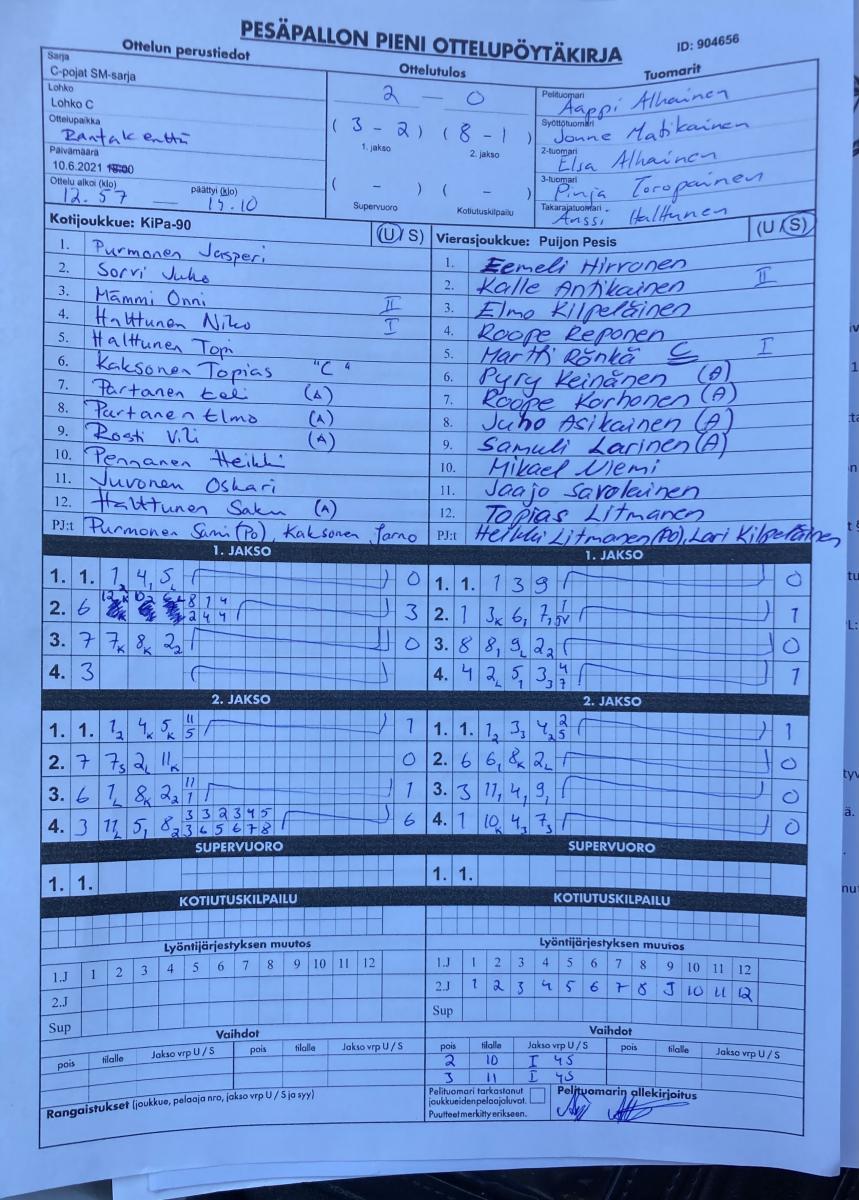 PESÄPALLON PIENI OTTELUPÖYTÄKIRJA
ID: 904656
Ottelun perustiedot
Sarja
C-pojat SM-sarja
Lohko
Lohko C
Ottelupaikka
Rantakenttä
Päivämäärä
10.6.2021
Ottelu alkoi (klo) päättyi (klo)
12.57 — 14.10
Ottelutulos
2 — 0
(3 - 2) (8 - 1)
1. jakso 2. jakso
( - ) ( - )
Supervuoro Kotiutuskilpailu
Tuomarit
Pelituomari
Aappi Alhainen
Syöttötuomari
Jonne Matikainen
2-tuomari
Elsa Alhainen
3-tuomari
Pinja Toropainen
Takarajatuomari
Anssi Halttunen
Kotijoukkue: KiPa-90 (U/S)
1. Purmonen Jasperi
2. Sorvi Juho
3. Mämmi Onni II
4. Halttunen Niko I
5. Halttunen Topi
6. Kaksonen Topias "C"
7. Partanen Eeli (A)
8. Partanen Elmo (A)
9. Rosti Vili (A)
10. Pennanen Heikki
11. Juvonen Oskari
12. Halttunen Saku (A)
PJ:t Purmonen Sami (PO), Kaksonen Jarno
Vierasjoukkue: Puijon Pesis (U/S)
1. Eemeli Hirvonen
2. Kalle Antikainen II
3. Elmo Kilpeläinen
4. Roope Reponen
5. Martti Rönkä C I
6. Pyry Keinänen (A)
7. Roope Korhonen (A)
8. Juho Asikainen (A)
9. Samuli Larinen (A)
10. Mikael Niemi
11. Jaajo Savolainen
12. Topias Litmanen
PJ:t Heikki Litmanen (PO), Lari Kilpeläinen
1. JAKSO
1. 1. 12 4, 5L 0
2. 6 8 1 4 3
2 4 4
3. 7 7K 8K 22 0
4. 3
2. JAKSO
1. 1. 12 4K 5K 11 1
5
2. 7 7S 2L 11K 0
3. 6 1L 8K 22 11 1
1
4. 3 11L 5, 82 3 3 2 3 4 5 6
3 6 5 6 7 8
SUPERVUORO
1. 1.
KOTIUTUSKILPAILU
Lyöntijärjestyksen muutos
1.J 1 2 3 4 5 6 7 8 9 10 11 12
2.J
Sup
Vaihdot
pois tilalle Jakso vrp U / S pois tilalle Jakso vrp U / S
Rangaistukset (joukkue, pelaaja nro, jakso vrp U / S ja syy)
1. JAKSO
1. 1. 1 3 9 0
2. 1 3K 6, 7, 1 1
3. 8 8, 9L 22 0
4. 4 2L 5, 33 4 1
7
2. JAKSO
1. 1. 12 33 42 2 1
5
2. 6 6, 8K 2L 0
3. 3 11, 4, 9, 0
4. 1 10K 43 73 0
SUPERVUORO
1. 1.
KOTIUTUSKILPAILU
Lyöntijärjestyksen muutos
1.J 1 2 3 4 5 6 7 8 9 10 11 12
2.J 1 2 3 4 5 6 7 8 9 10 11 12
Sup
Vaihdot
pois tilalle Jakso vrp U / S pois tilalle Jakso vrp U / S
2 10 I 4S
3 11 I 4S
Pelituomari tarkastanut
joukkueiden pelaajaluvat.
Puutteet merkitty erikseen.
Pelituomarin allekirjoitus